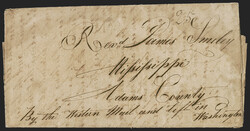 Revd James Smiley
Mississippi
Adams County
By the Western Mail and left in
Washington